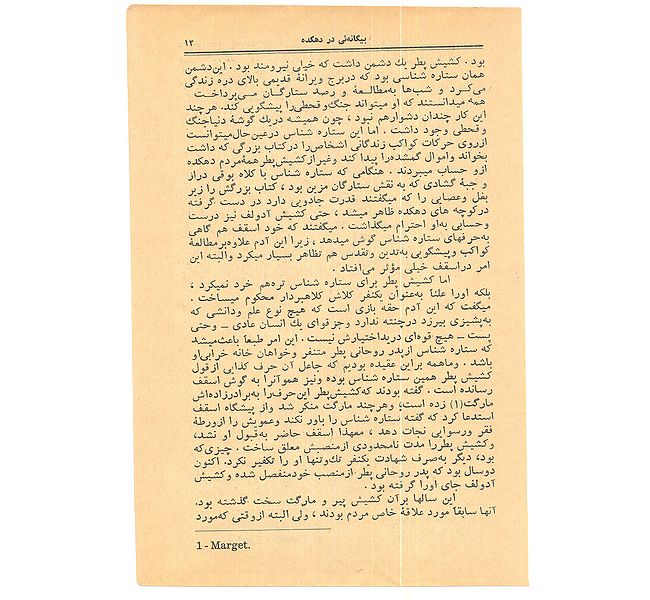 بیگانه‌ئی در دهکده ۱۳
بود . کشیش پطر یك دشمن داشت که خیلی نیرومند بود . این‌دشمن
همان ستاره شناسی بود که دربرج ویرانهٔ قدیمی بالای دره زندگی
می‌کرد و شب‌ها به‌مطالعهٔ و رصد ستارگان می‌پرداخت .
همه میدانستند که او میتواند جنگ‌وقحطی‌را پیشگویی کند. هرچند
این کار چندان دشوارهم نبود ، چون همیشه دریك گوشهٔ دنیاجنگ
وقحطی وجود داشت . اما این ستاره شناس درعین‌حال‌میتوانست
ازروی حرکات کواکب زندگانی اشخاص‌را درکتاب بزرگی که داشت
بخواند واموال گمشده‌را پیدا کند وغیرازکشیش‌پطرهمهٔ‌مردم دهکده
ازو حساب میبردند . هنگامی که ستاره شناس با کلاه بوقی دراز
و جبهٔ گشادی که به نقش ستارگان مزین بود ، کتاب بزرگش را زیر
بغل وعصایی را که میگفتند قدرت جادویی دارد در دست گرفته
درکوچه های دهکده ظاهر میشد ، حتی کشیش آدولف نیز درست
وحسابی به‌او احترام میگذاشت . میگفتند که خود اسقف هم گاهی
به‌حرفهای ستاره شناس گوش میدهد ، زیرا این آدم علاوه‌برمطالعهٔ
کواکب وپیشگویی به‌تدین وتقدس هم تظاهر بسیار میکرد والبته این
امر دراسقف خیلی مؤثر می‌افتاد .
اما کشیش پطر برای ستاره شناس تره‌هم خرد نمیکرد ،
بلکه اورا علناً به‌عنوان یکنفر کلاش کلاهبردار محکوم میساخت .
میگفت که این آدم حقه بازی است که هیچ نوع علم ودانشی که
به‌پشیزی بیرزد درچنته ندارد وجزقوای یك انسان عادی ــ وحتی
پست ــ هیچ قوه‌ای دریداختیارش نیست . این امر طبعاً باعث‌میشد
که ستاره شناس ازپدر روحانی پطر متنفر وخواهان خانه خرابی‌او
باشد . وماهمه براین عقیده بودیم که جاعل آن حرف کذایی ازقول
کشیش پطر همین ستاره شناس بوده ونیز هموآنرا به گوش اسقف
رسانده است . گفته بودند که‌کشیش‌پطر این‌حرف‌را به‌برادرزاده‌اش
مارگت(۱) زده است؛ وهرچند مارگت منکر شد واز پیشگاه اسقف
استدعا کرد که گفته ستاره شناس را باور نکند وعمویش را ازورطهٔ
فقر ورسوایی نجات دهد ، معهذا اسقف حاضر به‌قبول او نشد،
وکشیش پطررا مدت نامحدودی ازمنصبش معلق ساخت . چیزی‌که
بود، دیگر به‌صرف شهادت یکنفر تك‌وتنها او را تکفیر نکرد. اکنون
دوسال بود که پدر روحانی پطر ازمنصب خودمنفصل شده وکشیش
آدولف جای اورا گرفته بود .
این سالها برآن کشیش پیر و مارگت سخت گذشته بود.
آنها سابقاً مورد علاقهٔ خاص مردم بودند ، ولی البته ازوقتی که‌مورد
1 - Marget.